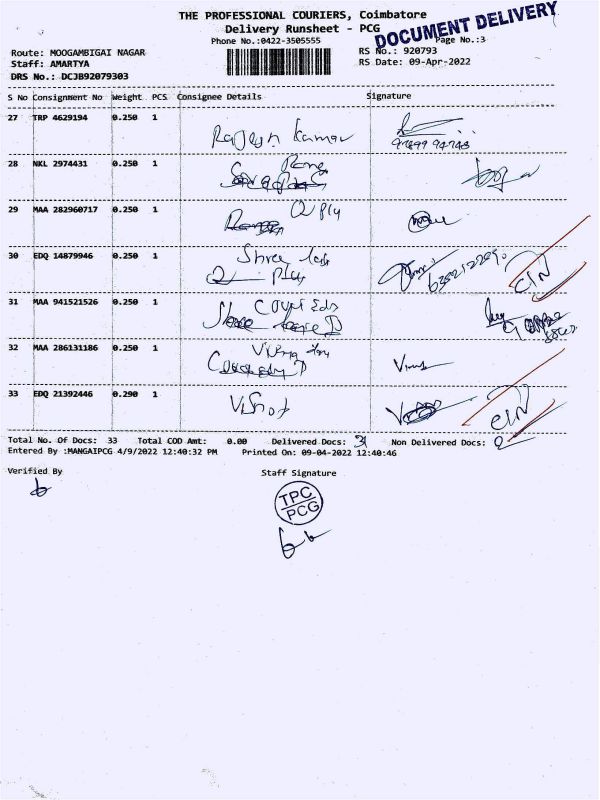 THE PROFESSIONAL COURIERS, Coimbatore
Delivery Runsheet - PCG
DOCUMENT DELIVERY
Phone No.:0422-3505555
Page No.:3
Route: MOOGAMBIGAI NAGAR
RS No.: 920793
Staff: AMARTYA
RS Date: 09-Apr-2022
DRS No.: DCJB92079303
S No Consignment No Weight PCS Consignee Details Signature
27 TRP 4629194 0.250 1
Rajesh Kumar
28 NKL 2974431 0.250 1
29 MAA 282960717 0.250 1
30 EDQ 14879946 0.250 1
Shree
CIN
31 MAA 941521526 0.250 1
32 MAA 286131186 0.250 1
33 EDQ 21392446 0.290 1
CIN
Total No. Of Docs: 33 Total COD Amt: 0.00 Delivered Docs: 31 Non Delivered Docs: 2
Entered By :MANGAIPCG 4/9/2022 12:40:32 PM Printed On: 09-04-2022 12:40:46
Verified By Staff Signature
TPC
PCG